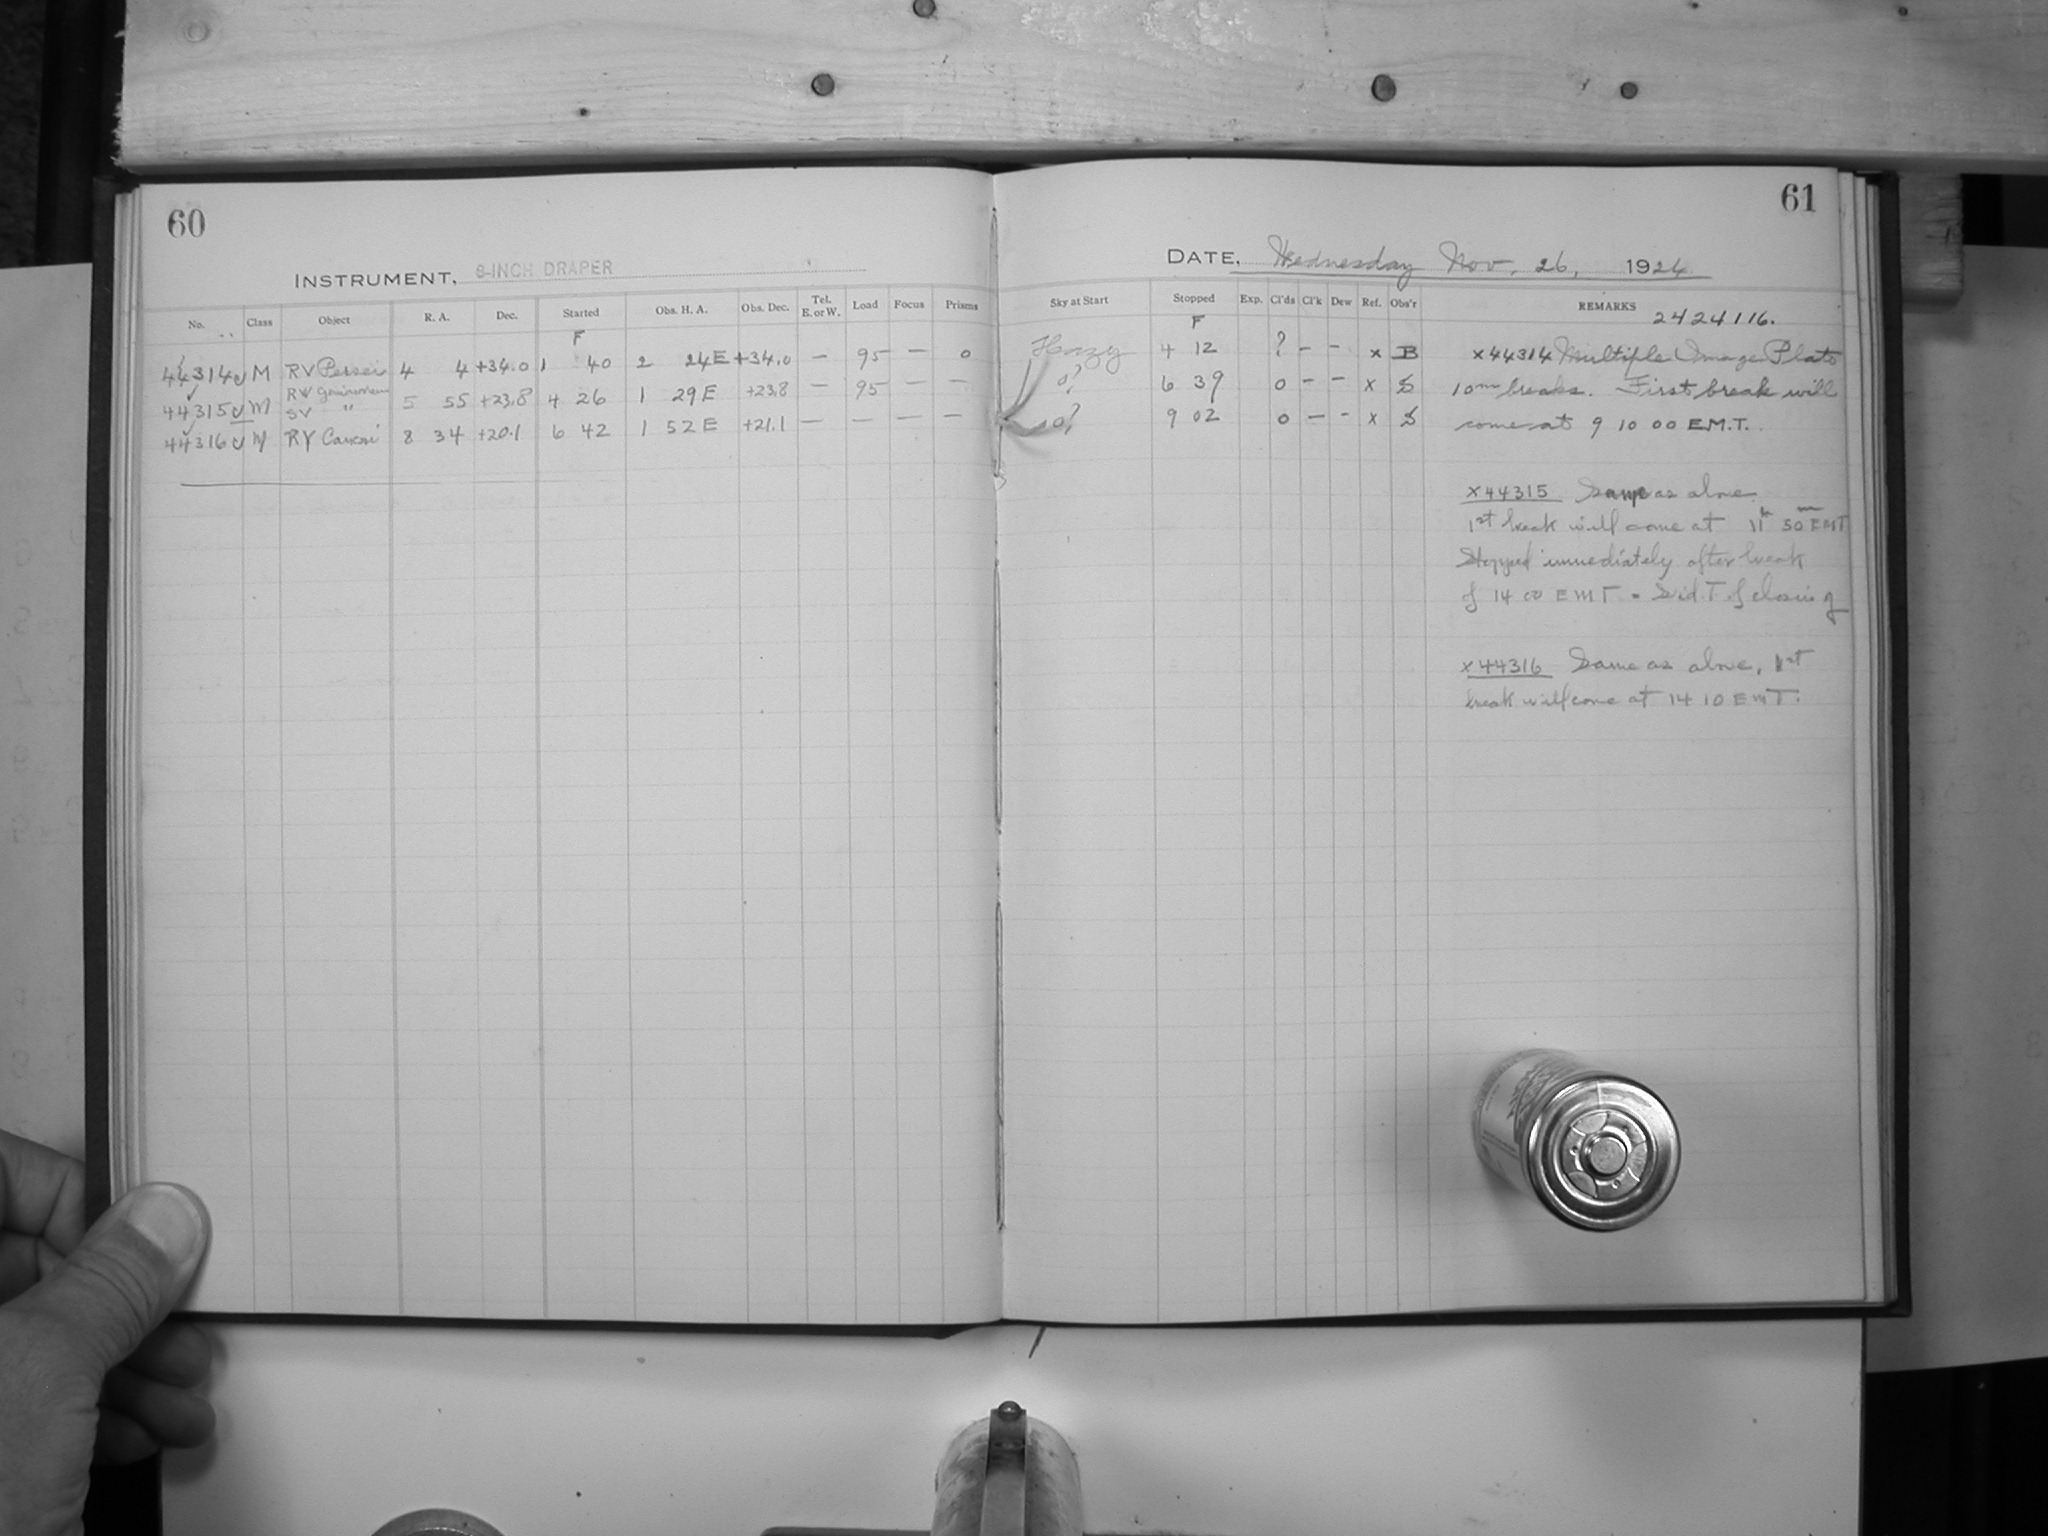 60
61
INSTRUMENT, 8-INCH DRAPER
DATE, Wednesday Nov. 26, 1924
No. Class Object R. A. Dec. Started Obs. H. A. Obs. Dec. Tel. E. or W. Load Focus Prisms Sky at Start Stopped Exp. Cl'ds Cl'k Dew Ref. Obs'r REMARKS
F F 2424116.
44314 M RV Persei 4 4 +34.0 1 40 2 24E +34.0 — 95 — 0 Hazy 4 12 ? — — x B x44314 Multiple Image Plate
RW Geminorum
44315 M SV " 5 55 +23.8 4 26 1 29E +23.8 — 95 — — 0? 6 39 0 — — x S 10m breaks. First break will
44316 M RY Cancri 8 34 +20.1 6 42 1 52E +21.1 — — — — 0? 9 02 0 — — x S come at 9 10 00 E.M.T.
x44315 Same as above.
1st break will come at 11h 50m EMT
Stopped immediately after break
of 14 00 EMT = Sid. T. of closing
x44316 Same as above, 1st
break will come at 14 10 EMT.